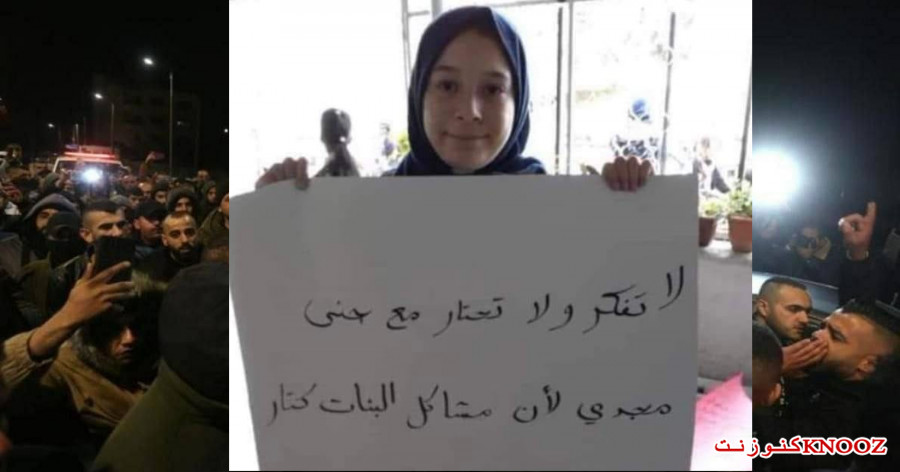 لا تفكر ولا تحتار مع حنى
مجدي لأن مشاكل البنات كتار
كنوزنتKNOOZ